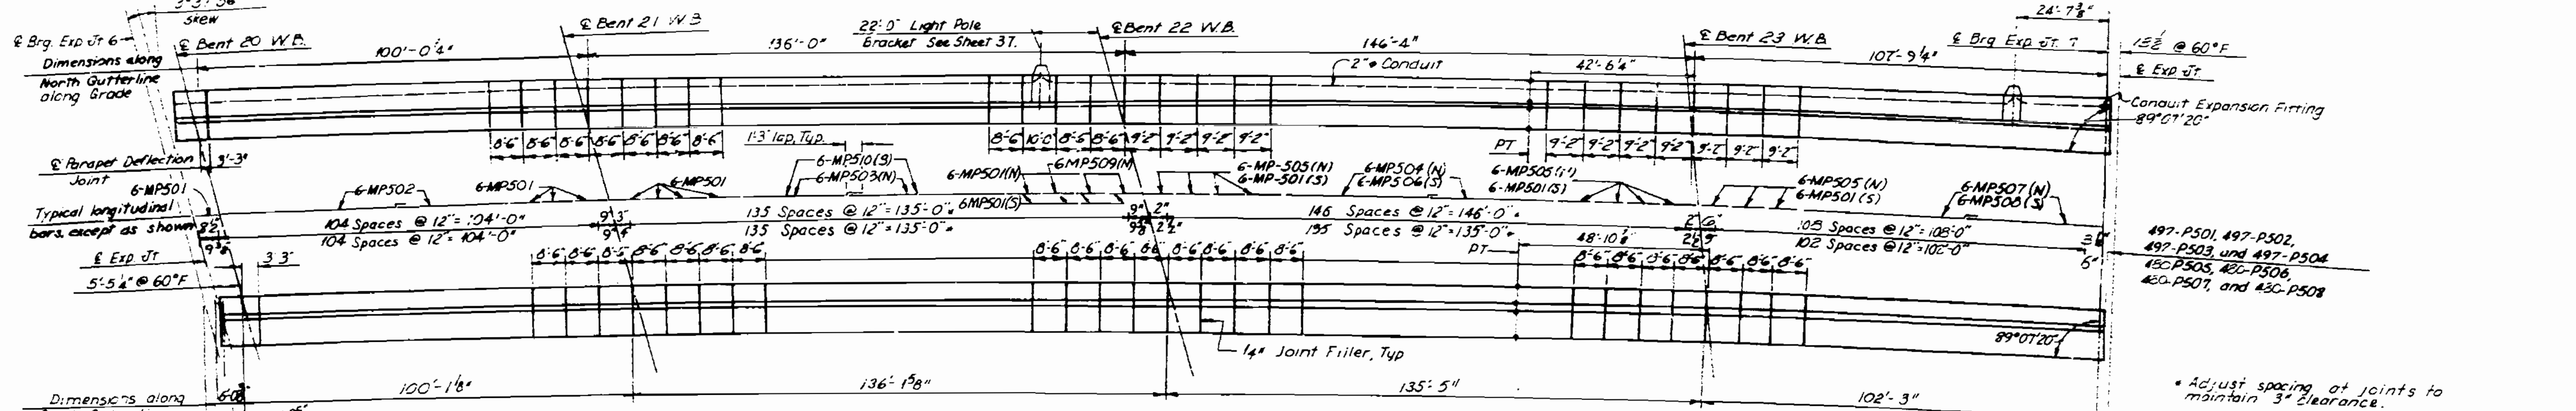 Skew
℄ Brg. Exp Jt 6
℄ Bent 20 W.B.
Dimensions along
North Gutterline
along Grade
100'-0¼"
℄ Bent 21 W.B
136'-0"
22'-0" Light Pole
Bracket See Sheet 37.
℄ Bent 22 W.B.
146'-4"
2"ø Conduit
42'-6¼"
℄ Bent 23 W.B
107'-9¼"
24'-7⅜"
℄ Brg Exp Jt. 7
@ 60°F
℄ Exp Jt.
Conduit Expansion Fitting
89°07'20"
8'-6" 8'-6" 8'-6" 8'-6" 8'-6" 8'-6" 8'-6"
1'-3" lap, Typ.
8'-6" 10'-0" 8'-6" 8'-6" 9'-2" 9'-2" 9'-2" 9'-2"
PT
9'-2" 9'-2" 9'-2" 9'-2" 9'-2" 9'-2" 9'-2"
℄ Parapet Deflection
Joint
3'-3"
6-MP501
Typical longitudinal
bars, except as shown
6-MP502
6-MP501
6-MP501
6-MP510(S)
6-MP503(N)
6-MP501(N)
6-MP509(N)
6MP501(S)
6-MP-505(N)
6-MP-501(S)
6-MP504(N)
6-MP506(S)
6-MP505(N)
6-MP501(S)
6-MP505(N)
6-MP501(S)
6-MP507(N)
6-MP508(S)
104 Spaces @ 12" = 104'-0"
104 Spaces @ 12" = 104'-0"
135 Spaces @ 12" = 135'-0"*
135 Spaces @ 12" = 135'-0"*
146 Spaces @ 12" = 146'-0"*
135 Spaces @ 12" = 135'-0"*
108 Spaces @ 12" = 108'-0"
102 Spaces @ 12" = 102'-0"
497-P501, 497-P502,
497-P503, and 497-P504
480-P505, 480-P506,
480-P507, and 480-P508
℄ Exp Jt
5'-5¼" @ 60°F
3'-3"
8'-6" 8'-6" 8'-6" 8'-6" 8'-6" 8'-6" 8'-6"
8'-6" 8'-6" 8'-6" 8'-6" 8'-6" 8'-6" 8'-6" 8'-6"
PT
8'-6" 8'-6" 8'-6" 8'-6" 8'-6" 8'-6" 8'-6"
¼" Joint Filler, Typ
89°07'20"
Dimensions along
100'-1⅛"
136'-1⅝"
135'-5"
102'-3"
* Adjust spacing at joints to
maintain 3" clearance.